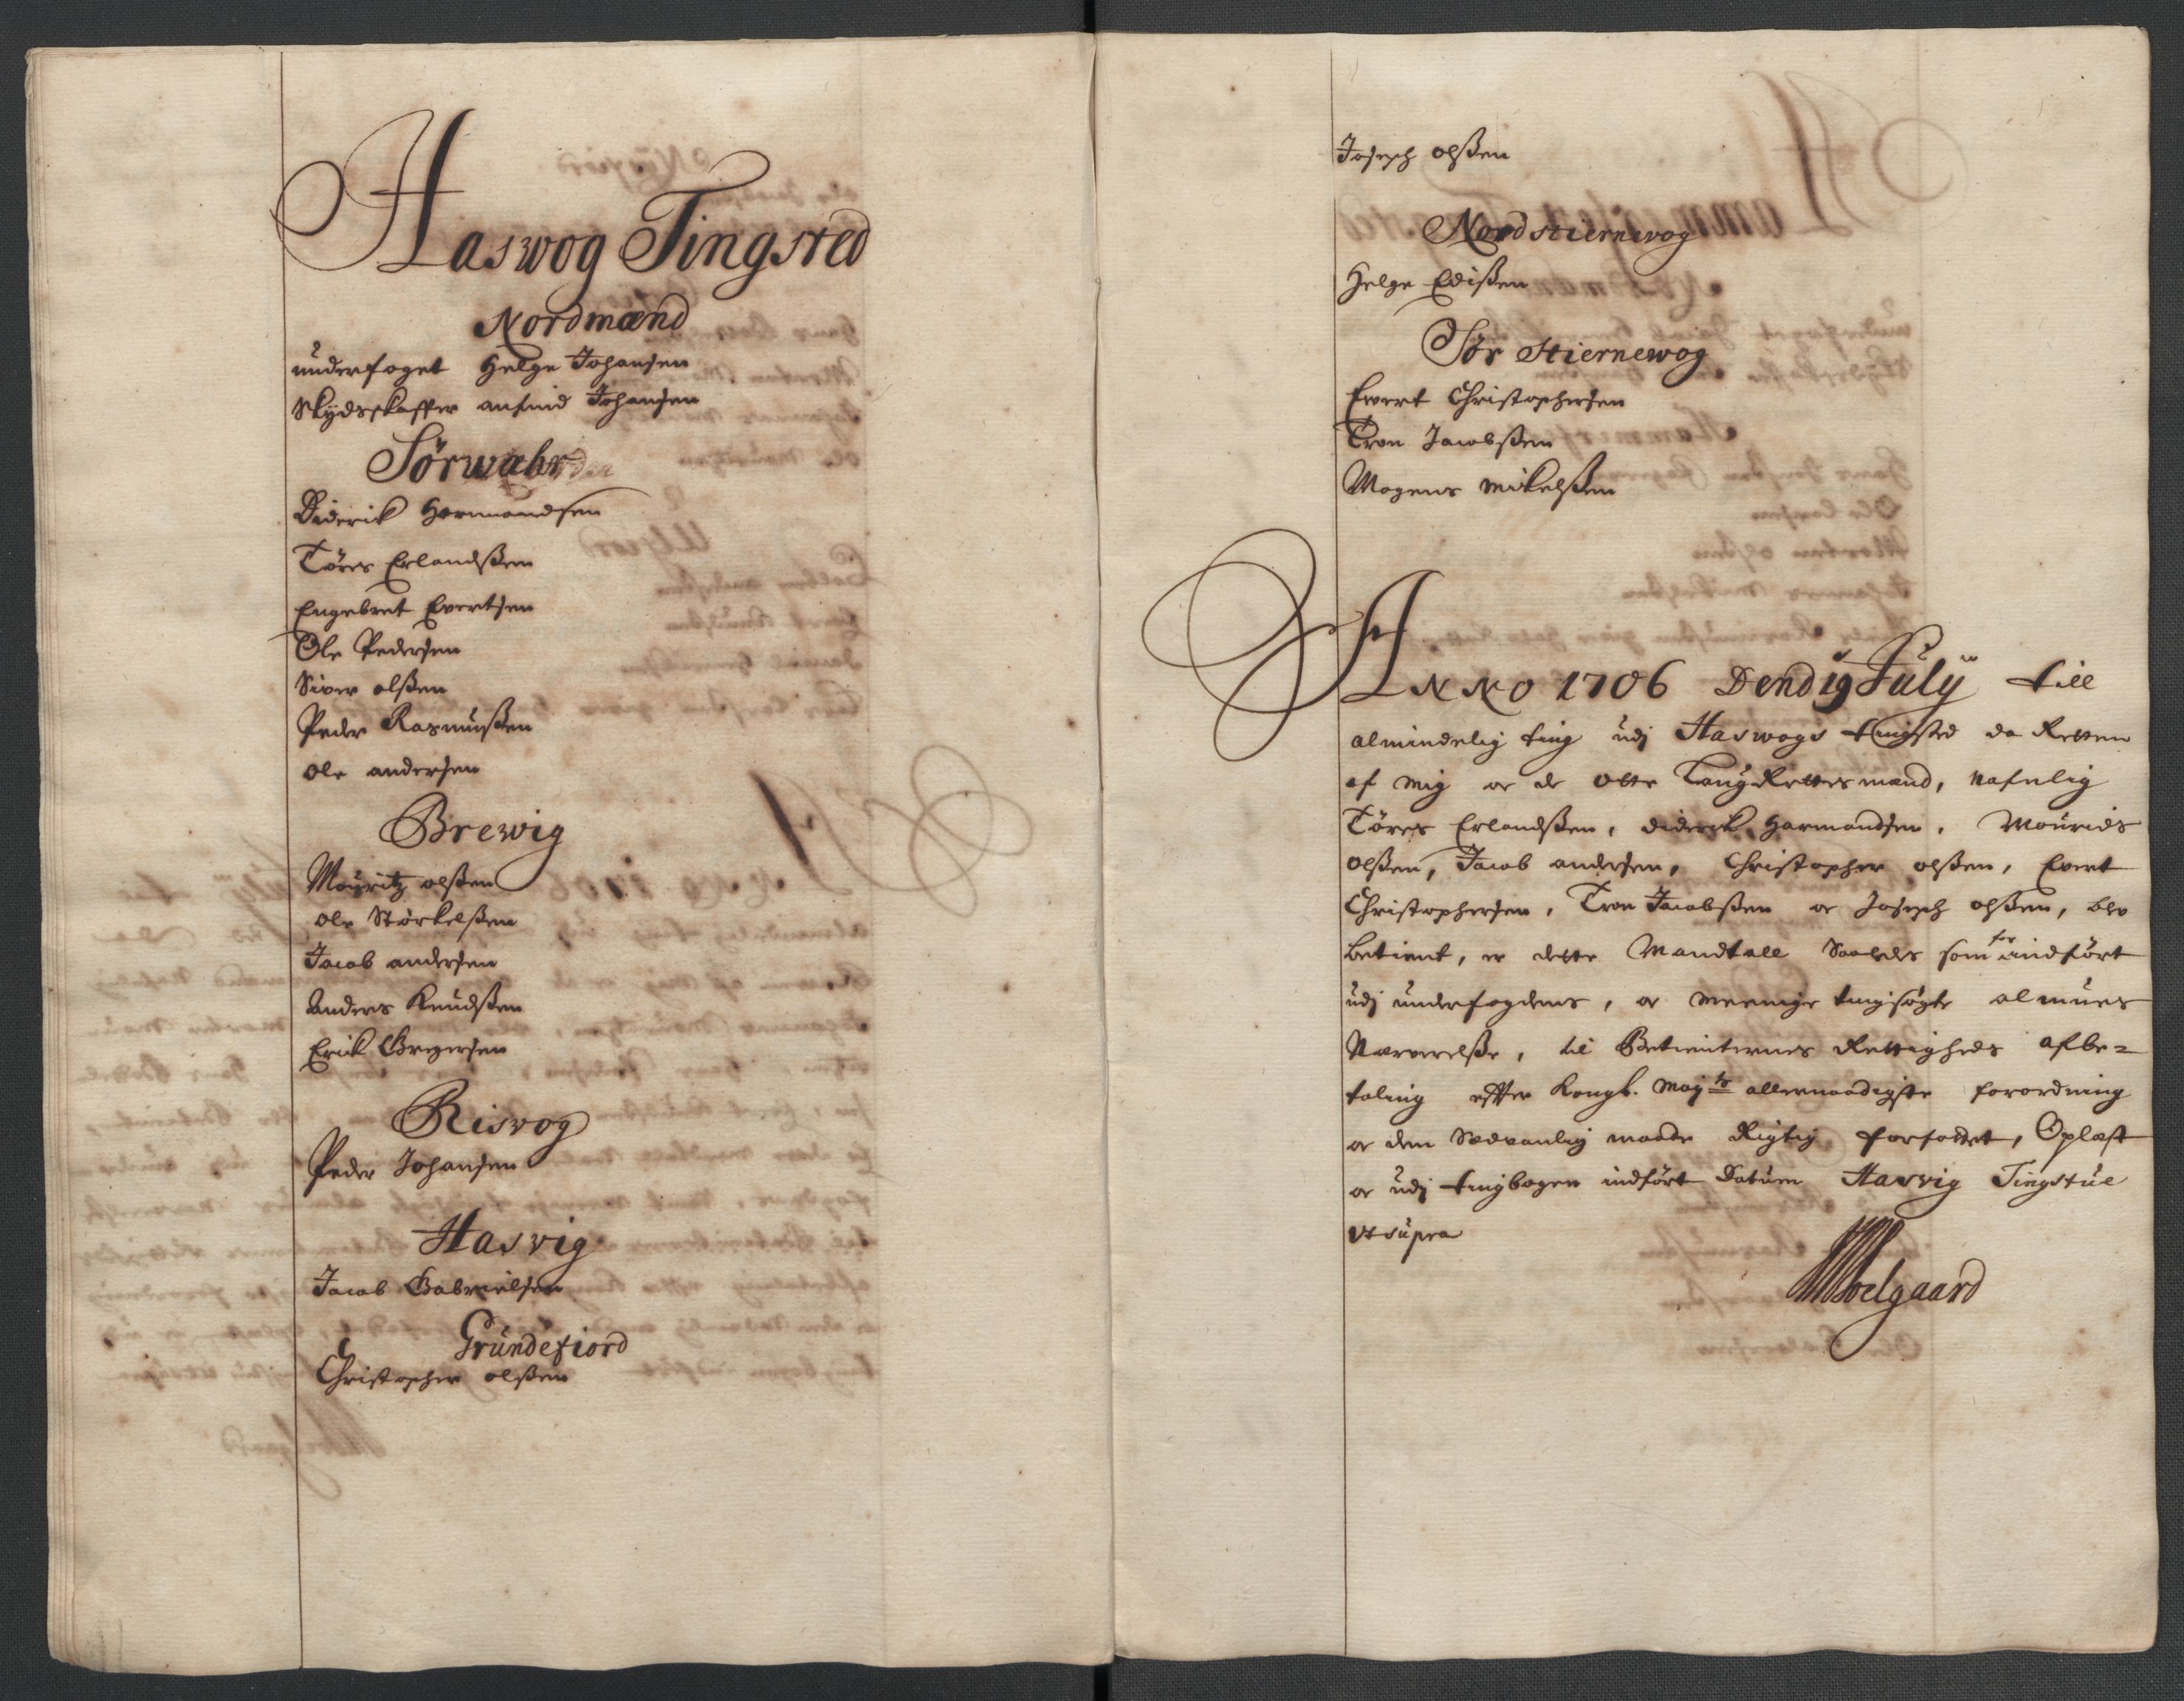 Haswog Tingsted
Nordmænd
underfoget Helge Johansen
Skydsskaffer anfind Johansen
Sørwahr
Diderik Harmandsen
Tøres Erlandßen
Engebret Evertsen
Ole Pedersen
Siver olßen
Peder Rasmußen
ole andersen
Brewig
Mouritz olßen
ole Størkelßen
Jacob andersen
Anders Knudßen
Erick Gregersen
Risvog
Peder Johansen
Hasvig
Jacob Gabrielsen
Grundefiord
Christopher olßen
Joseph olßen
Nordstiernevog
Helge Edißen
Sør Stiernewog
Evert Christophersen
Tron Jacobßen
Mogens Mikelßen
ANNO 1706 Dend 19 July till
almindelig ting udj Haswogs tingsted da Retten
af mig oc de otte LaugRettesmænd, nafnlig
Tøres Erlandßen, diderik Harmandsen, Mourids
olßen, Jacob andersen, Christopher olßen, Evert
Christophersen, Tron Jacobßen oc Joseph olßen, blev
betient, er dette Mandtall Saaledes som for indført
udj underfogdens, oc meenige tingsøgte almues
Nærverelße, til Betienternes Rettigheds afbe=
taling effter Kongl. May:ts allernaadigste forordning
oc den Sædvanlig maade Rigtig forfattet, Oplæst
oc udj tingbogen indført Datum Hasvig Tingstue
ut supra